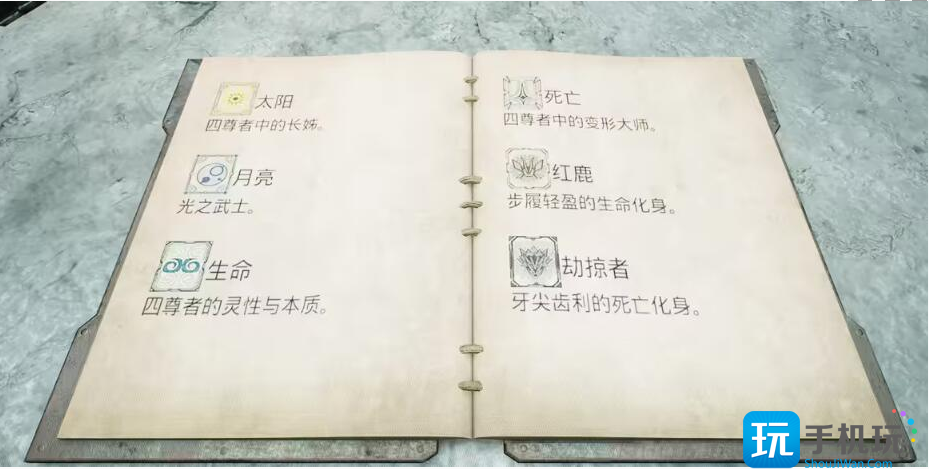 太阳
四尊者中的长姊。
月亮
光之武士。
生命
四尊者的灵性与本质。
死亡
四尊者中的变形大师。
红鹿
步履轻盈的生命化身。
劫掠者
牙尖齿利的死亡化身。
玩 手机玩